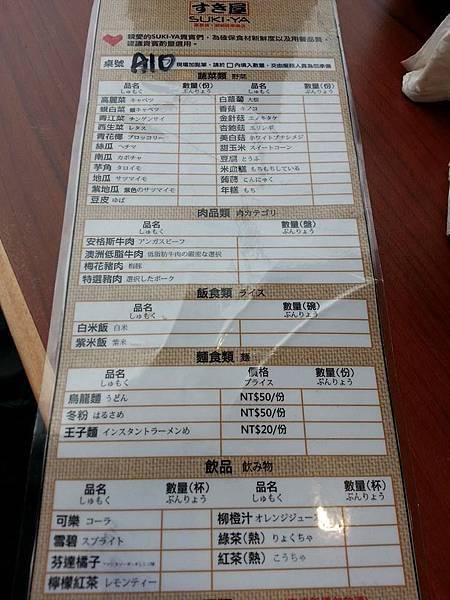 すき屋
SUKI-YA
親愛的SUKI-YA貴賓們，為確保食材新鮮度以及用餐品質，
建議貴賓酌量選用。
桌號 A10 現場加點單，請於□內填入數量，交由服務人員為您準備
蔬菜類 野菜
品名 數量(份) 品名 數量(份)
しゅもく ぶんりょう しゅもく ぶんりょう
高麗菜 キャベツ 白蘿蔔 大根
娥白菜 キャベツ 香菇 キノコ
青江菜 チンゲンサイ 金針菇 エノキタケ
西生菜 レタス 杏鮑菇 エリンギ
青花椰 ブロッコリー 美白菇 ホワイトブナシメジ
絲瓜 ヘチマ 甜玉米 スイートコーン
南瓜 カボチャ 豆腐 とうふ
芋角 タロイモ 米血糕 もちもちしている
地瓜 サツマイモ 蒟蒻 こんにゃく
紫地瓜 紫色のサツマイモ 年糕 もち
豆皮 ゆば
肉品類 肉カテゴリ
品名 數量(盤)
しゅもく ぶんりょう
安格斯牛肉 アンガスビーフ
澳洲低脂牛肉 低脂肪牛肉の厳密な選択
梅花豬肉 梅豚
特選豬肉 選択したポーク
飯食類 ライス
品名 數量(碗)
しゅもく ぶんりょう
白米飯 白米
紫米飯 紫米
麵食類 麺
品名 價格 數量(份)
しゅもく プライス ぶんりょう
烏龍麵 うどん NT$50/份
冬粉 はるさめ NT$50/份
王子麵 インスタントラーメンめ NT$20/份
飲品 飲み物
品名 數量(杯) 品名 數量(杯)
しゅもく ぶんりょう しゅもく ぶんりょう
可樂 コーラ 柳橙汁 オレンジジュース
雪碧 スプライト 綠茶(熱) りょくちゃ
芬達橘子 紅茶(熱) こうちゃ
檸檬紅茶 レモンティー